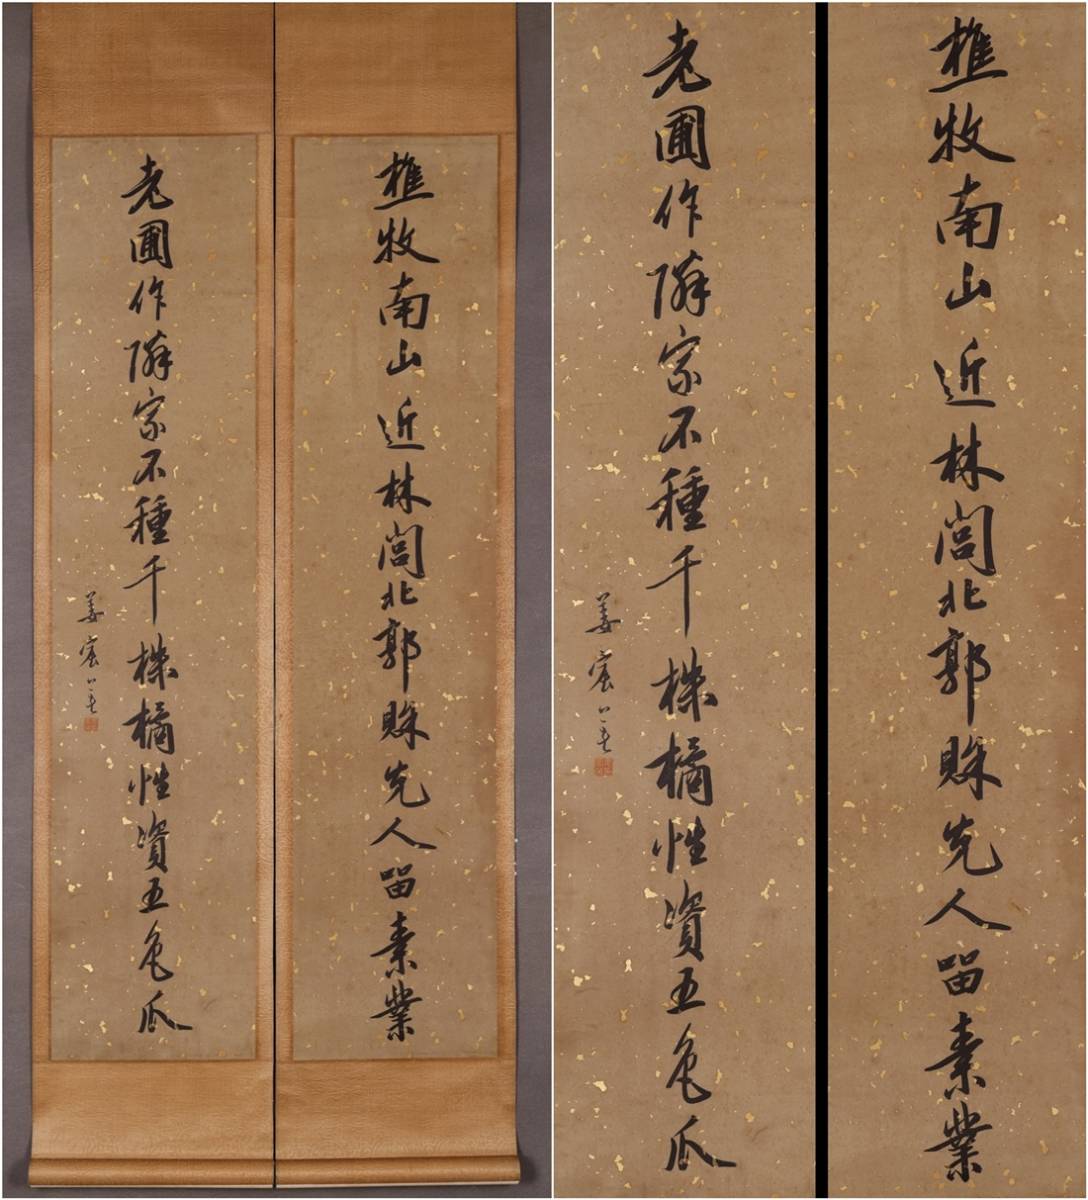 樵牧南山近林閭北郭賒先人留素業
老圃作隣家不種千株橘惟資五色瓜
姜宸英
樵牧南山近林閭北郭賒先人留素業
老圃作隣家不種千株橘惟資五色瓜
姜宸英